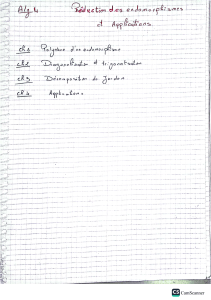 Alg 4 Réduction des endomorphismes
et Applications.
ch1 Polynôme d'es endomorphisme
ch2 Diagonalisation et trigonalisation
ch3 Décomposition de Jordan
ch4 Applications
CS CamScanner